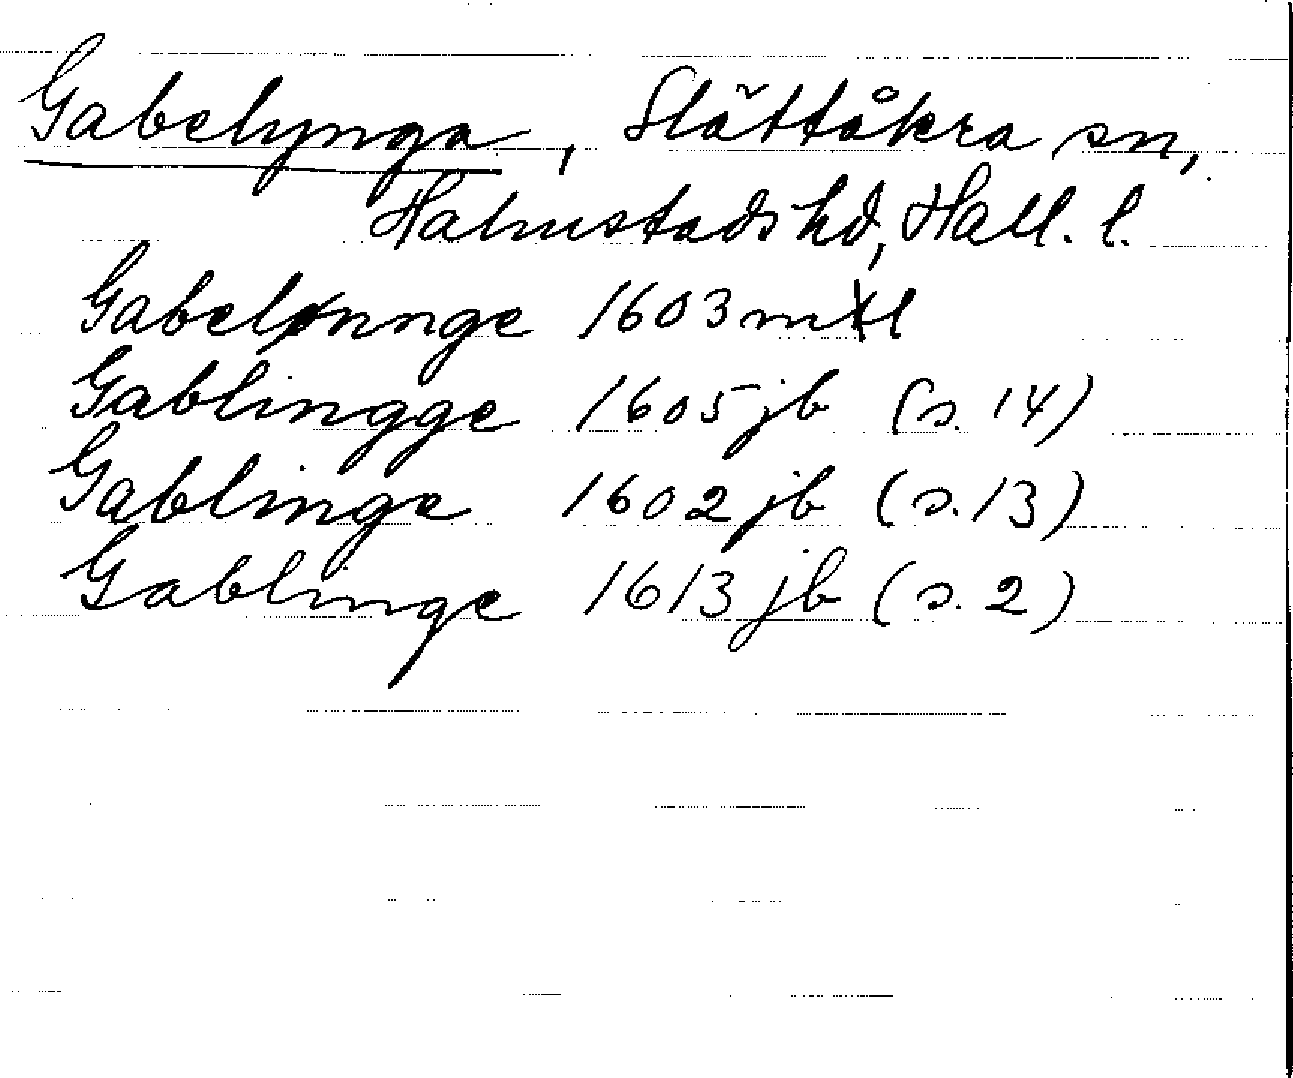 Gabelynga, Slättåkra sn,
Halmstads hd, Hall. l.
Gabelønnge 1603 mtl
Gablingge 1605 jb (s. 14)
Gablinge 1602 jb (s. 13)
Gablinge 1613 jb (s. 2)